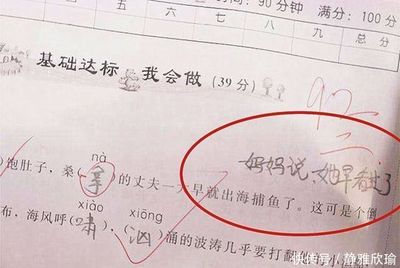 时间：90分钟 满分：100分
五 六 七 八 九 总分
基础达标 我会做（39分）
92
妈妈说，她早看过了
nà
饱肚子，桑（拿）的丈夫一大早就出海捕鱼了。这可是个倒
xiào xiōng
布，海风呼（啸），（汹）涌的波涛几乎要打翻
快传号／静雅欣瑜